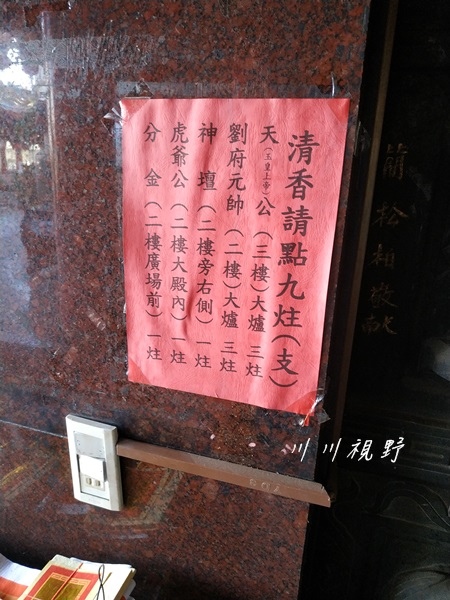 清香請點九炷(支)
天(玉皇上帝)公(三樓)大爐 三炷
劉府元帥(二樓)大爐 三炷
神壇(二樓旁右側)一炷
虎爺公(二樓大殿內)一炷
分金(二樓廣場前)一炷
簡松柏敬獻
川川視野